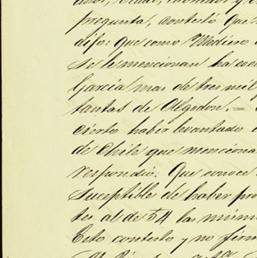 pregunta, contestó que
dijo: que como Medino
Se le mencionan ha
García mas de tres mil
tantas de Algodon. =
cierto haber levantado
de Chile que menciona
respondio. Que conoce
suceptible de haber pro
tes al de 54 la mism
Esto contesto y no firm